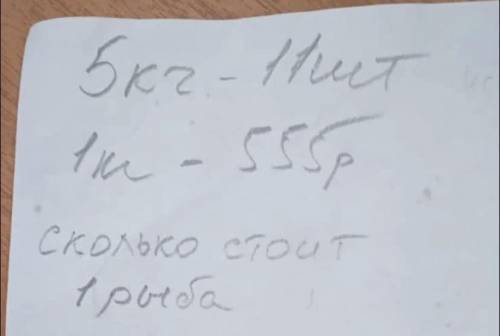 5кг - 11шт
1кг - 555р
сколько стоит
1 рыба